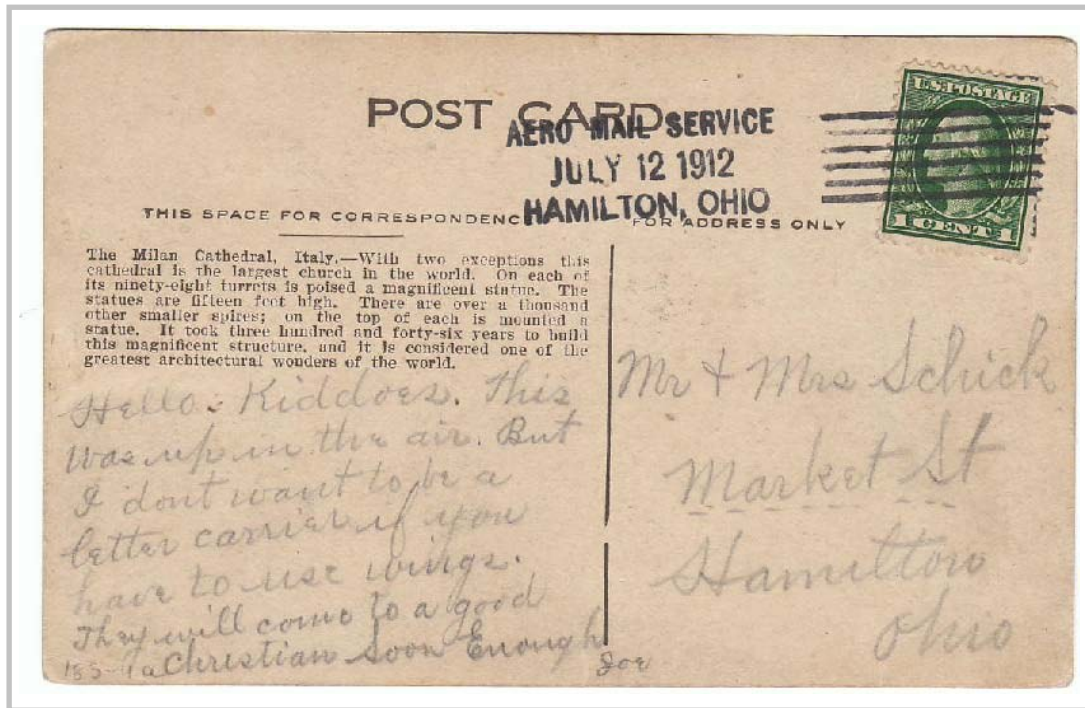 POST CARD
U.S. POSTAGE
1 CENT 1
AERO MAIL SERVICE
JULY 12 1912
HAMILTON, OHIO
THIS SPACE FOR CORRESPONDENC
FOR ADDRESS ONLY
The Milan Cathedral, Italy.—With two exceptions this
cathedral is the largest church in the world. On each of
its ninety-eight turrets is poised a magnificent statue. The
statues are fifteen feet high. There are over a thousand
other smaller spires; on the top of each is mounted a
statue. It took three hundred and forty-six years to build
this magnificent structure, and it is considered one of the
greatest architectural wonders of the world.
Hello. Kiddoes. This
was up in the air. But
I dont want to be a
letter carrier if you
have to use wings.
They will come to a good
Christian Soon Enough
Joe
Mr + Mrs Schick
Market St
Hamilton
Ohio